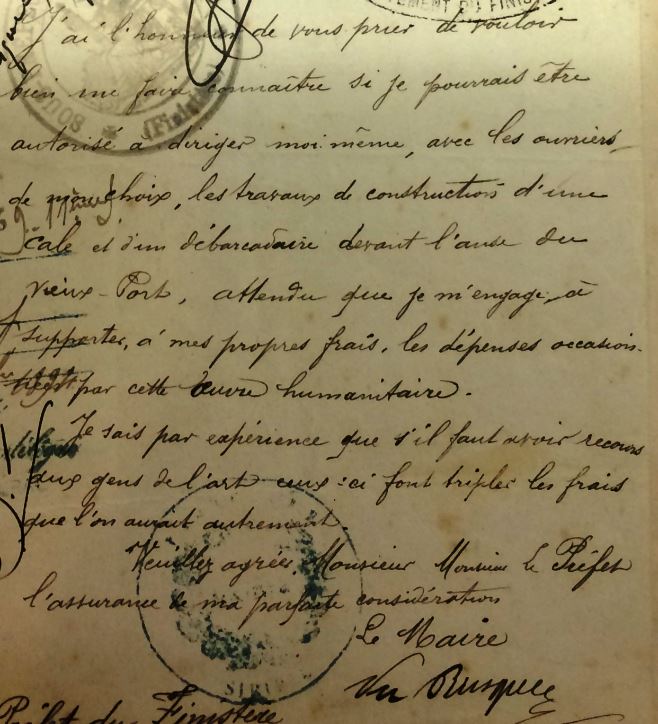 J'ai l'honneur de vous prier de vouloir
bien me faire connaître si je pourrais être
autorisé à diriger moi même, avec les ouvriers
de mon choix, les travaux de construction d'une
cale et d'un débarcadaire devant l'anse du
Vieux-Port, attendu que je m'engage à
supporter, à mes propres frais, les dépenses occasion-
nées par cette œuvre humanitaire.
Je sais par expérience que s'il faut avoir recours
aux gens de l'art ceux-ci font tripler les frais
que l'on aurait autrement.
Veuillez agréer, Monsieur Monsieur le Préfet
l'assurance de ma parfaite considération
Le Maire
Préfet du Finistère